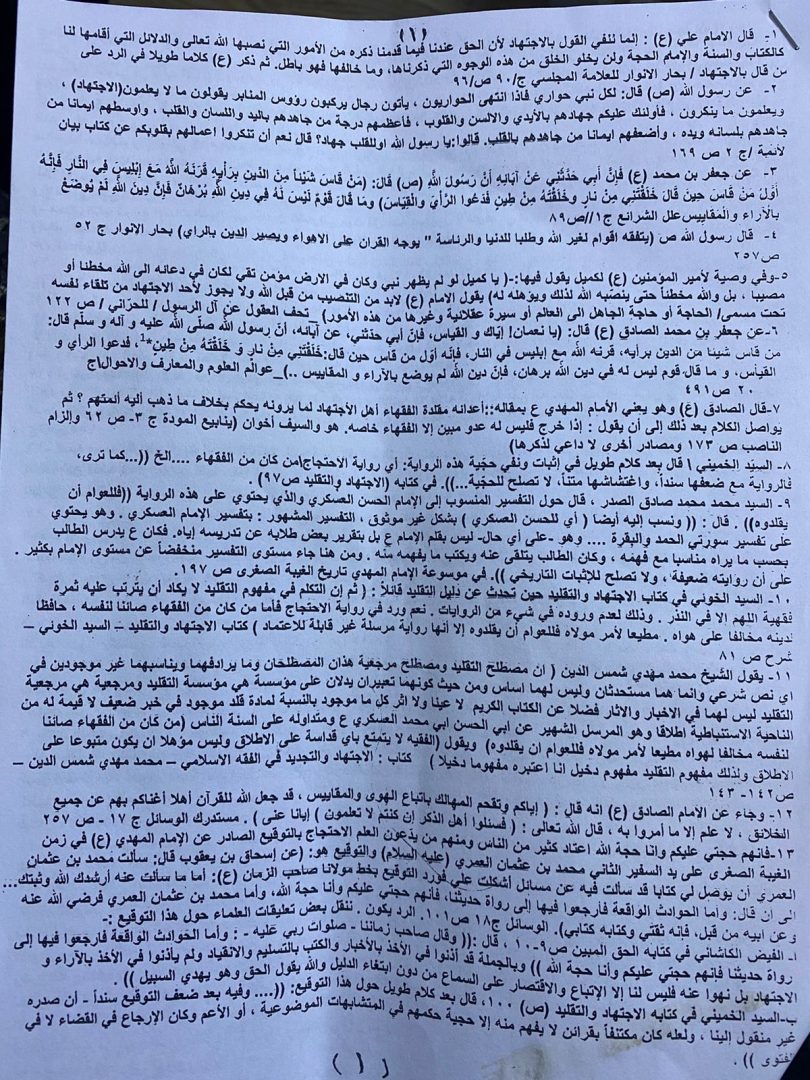 (١)
١- قال الامام علي (ع) : إنما ننفي القول بالاجتهاد لأن الحق عندنا فيما قدمنا ذكره من الأمور التي نصبها الله تعالى والدلائل التي أقامها لنا
كالكتاب والسنة والإمام الحجة ولن يخلو الخلق من هذه الوجوه التي ذكرناها، وما خالفها فهو باطل. ثم ذكر (ع) كلاما طويلا في الرد على
من قال بالاجتهاد / بحار الانوار للعلامة المجلسي ج/٩٠ ص/٩٦
٢- عن رسول الله (ص) قال: لكل نبي حواري فاذا انتهى الحواريون ، يأتون رجال يركبون رؤوس المنابر يقولون ما لا يعلمون(الاجتهاد) ،
ويعلمون ما ينكرون ، فأولنك عليكم جهادهم بالأيدي والالسن والقلوب ، فأعظمهم درجة من جاهدهم باليد واللسان والقلب ، واوسطهم ايمانا من
جاهدهم بلسانه ويده ، وأضعفهم ايمانا من جاهدهم بالقلب. قالوا:يا رسول الله اوللقلب جهاد؟ قال نعم أن تنكروا اعمالهم بقلوبكم عن كتاب بيان
لأئمة /ج ٢ ص ١٦٩
٣- عن جعفر بن محمد (ع) فَإِنَّ أَبِي حَدَّثَنِي عَنْ آبَائِهِ أَنَّ رَسُولَ اللَّهِ (ص) قَالَ: (مَنْ قَاسَ شَيْئاً مِنَ الدِّينِ بِرَأْيِهِ قَرَنَهُ اللَّهُ مَعَ إِبْلِيسَ فِي النَّارِ فَإِنَّهُ
أَوَّلُ مَنْ قَاسَ حِينَ قَالَ خَلَقْتَنِي مِنْ نَارٍ وَخَلَقْتَهُ مِنْ طِينٍ فَدَعُوا الرَّأْيَ وَالْقِيَاسَ) وَمَا قَالَ قَوْمٌ لَيْسَ لَهُ فِي دِينِ اللَّهِ بُرْهَانٌ فَإِنَّ دِينَ اللَّهِ لَمْ يُوضَعْ
بِالْآرَاءِ وَالْمَقَايِيسِ علل الشرائع ج١//ص٨٩
٤- قال رسول الله ص (يتفقه اقوام لغير الله وطلبا للدنيا والرئاسة " يوجه القران على الاهواء ويصير الدين بالراي) بحار الانوار ج ٥٢
ص٢٥٧
٥-وفي وصية لأمير المؤمنين (ع) لكميل يقول فيها:-( يا كميل لو لم يظهر نبي وكان في الارض مؤمن تقي لكان في دعائه الى الله مخطئا أو
مصيبا ، بل والله مخطئاً حتى ينصبه الله لذلك ويؤهله له) يقول الامام (ع) لابد من التنصيب من قبل الله ولا يجوز لأحد الاجتهاد من تلقاء نفسه
تحت مسمى/ الحاجة أو حاجة الجاهل الى العالم أو سيرة عقلانية وغيرها من هذه الأمور) _تحف العقول عن آل الرسول / للحرّاني / ص ١٢٢
٦-عن جعفر بن محمد الصادق (ع) قال: (يا نعمان! إيّاك و القياس، فإنّ أبي حدّثني، عن آبائه، أنّ رسول الله صلّى الله عليه و آله و سلّم قال:
من قاس شيئا من الدين برأيه، قرنه الله مع إبليس في النار، فإنه أوّل من قاس حين قال:خَلَقْتَنِي مِنْ نارٍ وَ خَلَقْتَهُ مِنْ طِينٍ*¹، فدعوا الرأي و
القياس، و ما قال قوم ليس له في دين الله برهان، فإنّ دين الله لم يوضع بالآراء و المقاييس ..)_عوالم العلوم والمعارف والاحوال\ج
٢٠ ص٤٩١
٧-قال الصادق (ع) وهو يعني الأمام المهدي ع بمقاله::أعدائه مقلدة الفقهاء أهل الأجتهاد لما يرونه يحكم بخلاف ما ذهب أليه أئمتهم ؟ ثم
يواصل الكلام بعد ذلك إلى أن يقول : إذا خرج فليس له عدو مبين إلا الفقهاء خاصه. هو والسيف أخوان (ينابيع المودة ج ٣- ص ٦٢ وإلزام
الناصب ص ١٧٣ ومصادر أخرى لا داعي لذكرها)
٨- السيّد الخميني \ قال بعد كلام طويل في إثبات ونفي حجّية هذه الرواية: أي رواية الاحتجاج\من كان من الفقهاء ....الخ ((...كما ترى،
فالرواية مع ضعفها سنداً، واغتشاشها متناً، لا تصلح للحجّية...)). في كتابه (الاجتهاد والتقليد ص٩٧) .
٩- السيد محمد محمد صادق الصدر ، قال حول التفسير المنسوب إلى الإمام الحسن العسكري والذي يحتوي على هذه الرواية ((فللعوام أن
يقلدوه)) . قال : (( ونسب إليه أيضا ( أي للحسن العسكري ) بشكل غير موثوق ، التفسير المشهور : بتفسير الإمام العسكري . وهو يحتوي
على تفسير سورتي الحمد والبقرة .... وهو -على أي حال- ليس بقلم الإمام ع بل بتقرير بعض طلابه عن تدريسه إياه. فكان ع يدرس الطالب
بحسب ما يراه مناسبا مع فهمه ، وكان الطالب يتلقى عنه ويكتب ما يفهمه منه . ومن هنا جاء مستوى التفسير منخفضاً عن مستوى الإمام بكثير .
على أن روايته ضعيفة ، ولا تصلح للإثبات التاريخي )). في موسوعة الإمام المهدي تاريخ الغيبة الصغرى ص ١٩٧
١٠- السيد الخوئي في كتاب الاجتهاد والتقليد حين تحدث عن دليل التقليد قائلاً : ( ثم إن التكلم في مفهوم التقليد لا يكاد أن يترتب عليه ثمرة
فقهية اللهم إلا في النذر . وذلك لعدم وروده في شيء من الروايات . نعم ورد في رواية الاحتجاج فأما من كان من الفقهاء صائنا لنفسه ، حافظا
لدينه مخالفا على هواه . مطيعا لأمر مولاه فللعوام أن يقلدوه إلا أنها رواية مرسلة غير قابلة للاعتماد ) كتاب الاجتهاد والتقليد – السيد الخوئي –
شرح ص ٨١
١١- يقول الشيخ محمد مهدي شمس الدين ( ان مصطلح التقليد ومصطلح مرجعية هذان المصطلحان وما يرادفهما ويناسبهما غير موجودين في
اي نص شرعي وانما هما مستحدثان وليس لهما اساس ومن حيث كونهما تعبيران يدلان على مؤسسة هي مؤسسة التقليد ومرجعية هي مرجعية
التقليد ليس لهما في الاخبار والاثار فضلا عن الكتاب الكريم لا عينا ولا اثر كل ما موجود بالنسبة لمادة قلد موجود في خبر ضعيف لا قيمة له من
الناحية الاستنباطية اطلاقا وهو المرسل الشهير عن ابي الحسن ابي محمد العسكري ع ومتداوله على السنة الناس (من كان من الفقهاء صائنا
لنفسه مخالفا لهواه مطيعا لأمر مولاه فللعوام ان يقلدوه) ويقول (الفقيه لا يتمتع بأي قداسة على الاطلاق وليس مؤهلا ان يكون متبوعا على
الاطلاق ولذلك مفهوم التقليد مفهوم دخيل انا اعتبره مفهوما دخيلا ) كتاب : الاجتهاد والتجديد في الفقه الاسلامي – محمد مهدي شمس الدين –
ص١٤٢- ١٤٣
١٢- وجاء عن الامام الصادق (ع) انه قال : ( إياكم وتقحم المهالك بأتباع الهوى والمقاييس ، قد جعل الله للقرآن أهلا أغناكم بهم عن جميع
الخلائق ، لا علم إلا ما أمروا به ، قال الله تعالى : ( فسئلوا أهل الذكر إن كنتم لا تعلمون ) إيانا عنى ) . مستدرك الوسائل ج ١٧ - ص ٢٥٧
١٣-فأنهم حجتي عليكم وانا حجة الله اعتاد كثير من الناس ومنهم من يدّعون العلم الاحتجاج بالتوقيع الصادر عن الإمام المهدي (ع) في زمن
الغيبة الصغرى على يد السفير الثاني محمد بن عثمان العمري (عليه السلام) والتوقيع هو: (عن إسحاق بن يعقوب قال: سألت محمد بن عثمان
العمري أن يوصل لي كتابا قد سألت فيه عن مسائل أشكلت علي فورد التوقيع بخط مولانا صاحب الزمان (ع): أما ما سألت عنه أرشدك الله وثبتك...
الى ان قال: وأما الحوادث الواقعة فأرجعوا فيها إلى رواة حديثنا، فأنهم حجتي عليكم وأنا حجة الله، وأما محمد بن عثمان العمري فرضي الله عنه
وعن ابيه من قبل، فإنه ثقتي وكتابه كتابي). الوسائل ج١٨ ص١٠١. الرد يكون . ننقل بعض تعليقات العلماء حول هذا التوقيع :-
أ- الفيض الكاشاني في كتابه الحق المبين ص٩-١٠ ، قال :(( وقال صاحب زماننا - صلوات ربي عليه - : وأما الحوادث الواقعة فارجعوا فيها إلى
رواة حديثنا فإنهم حجتي عليكم وأنا حجة الله )) وبالجملة قد أذنوا في الأخذ بالأخبار والكتب بالتسليم والانقياد ولم يأذنوا في الأخذ بالآراء و
الاجتهاد بل نهوا عنه فليس لنا إلا الإتباع والاقتصار على السماع من دون ابتغاء الدليل والله يقول الحق وهو يهدي السبيل )) .
ب-السيد الخميني في كتابه الاجتهاد والتقليد (ص) ١٠٠، قال بعد كلام طويل حول هذا التوقيع: ((.... وفيه بعد ضعف التوقيع سنداً - أن صدره
غير منقول إلينا ، ولعله كان مكتنفاً بقرائن لا يفهم منه إلا حجية حكمهم في المتشابهات الموضوعية ، أو الأعم وكان الإرجاع في القضاء لا في
الفتوى )) .
(١)